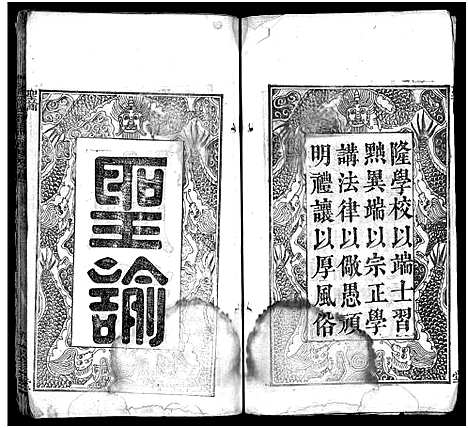 隆學校以端士習
黜異端以宗正學
講法律以儆愚頑
明禮讓以厚風俗
聖諭
聖諭